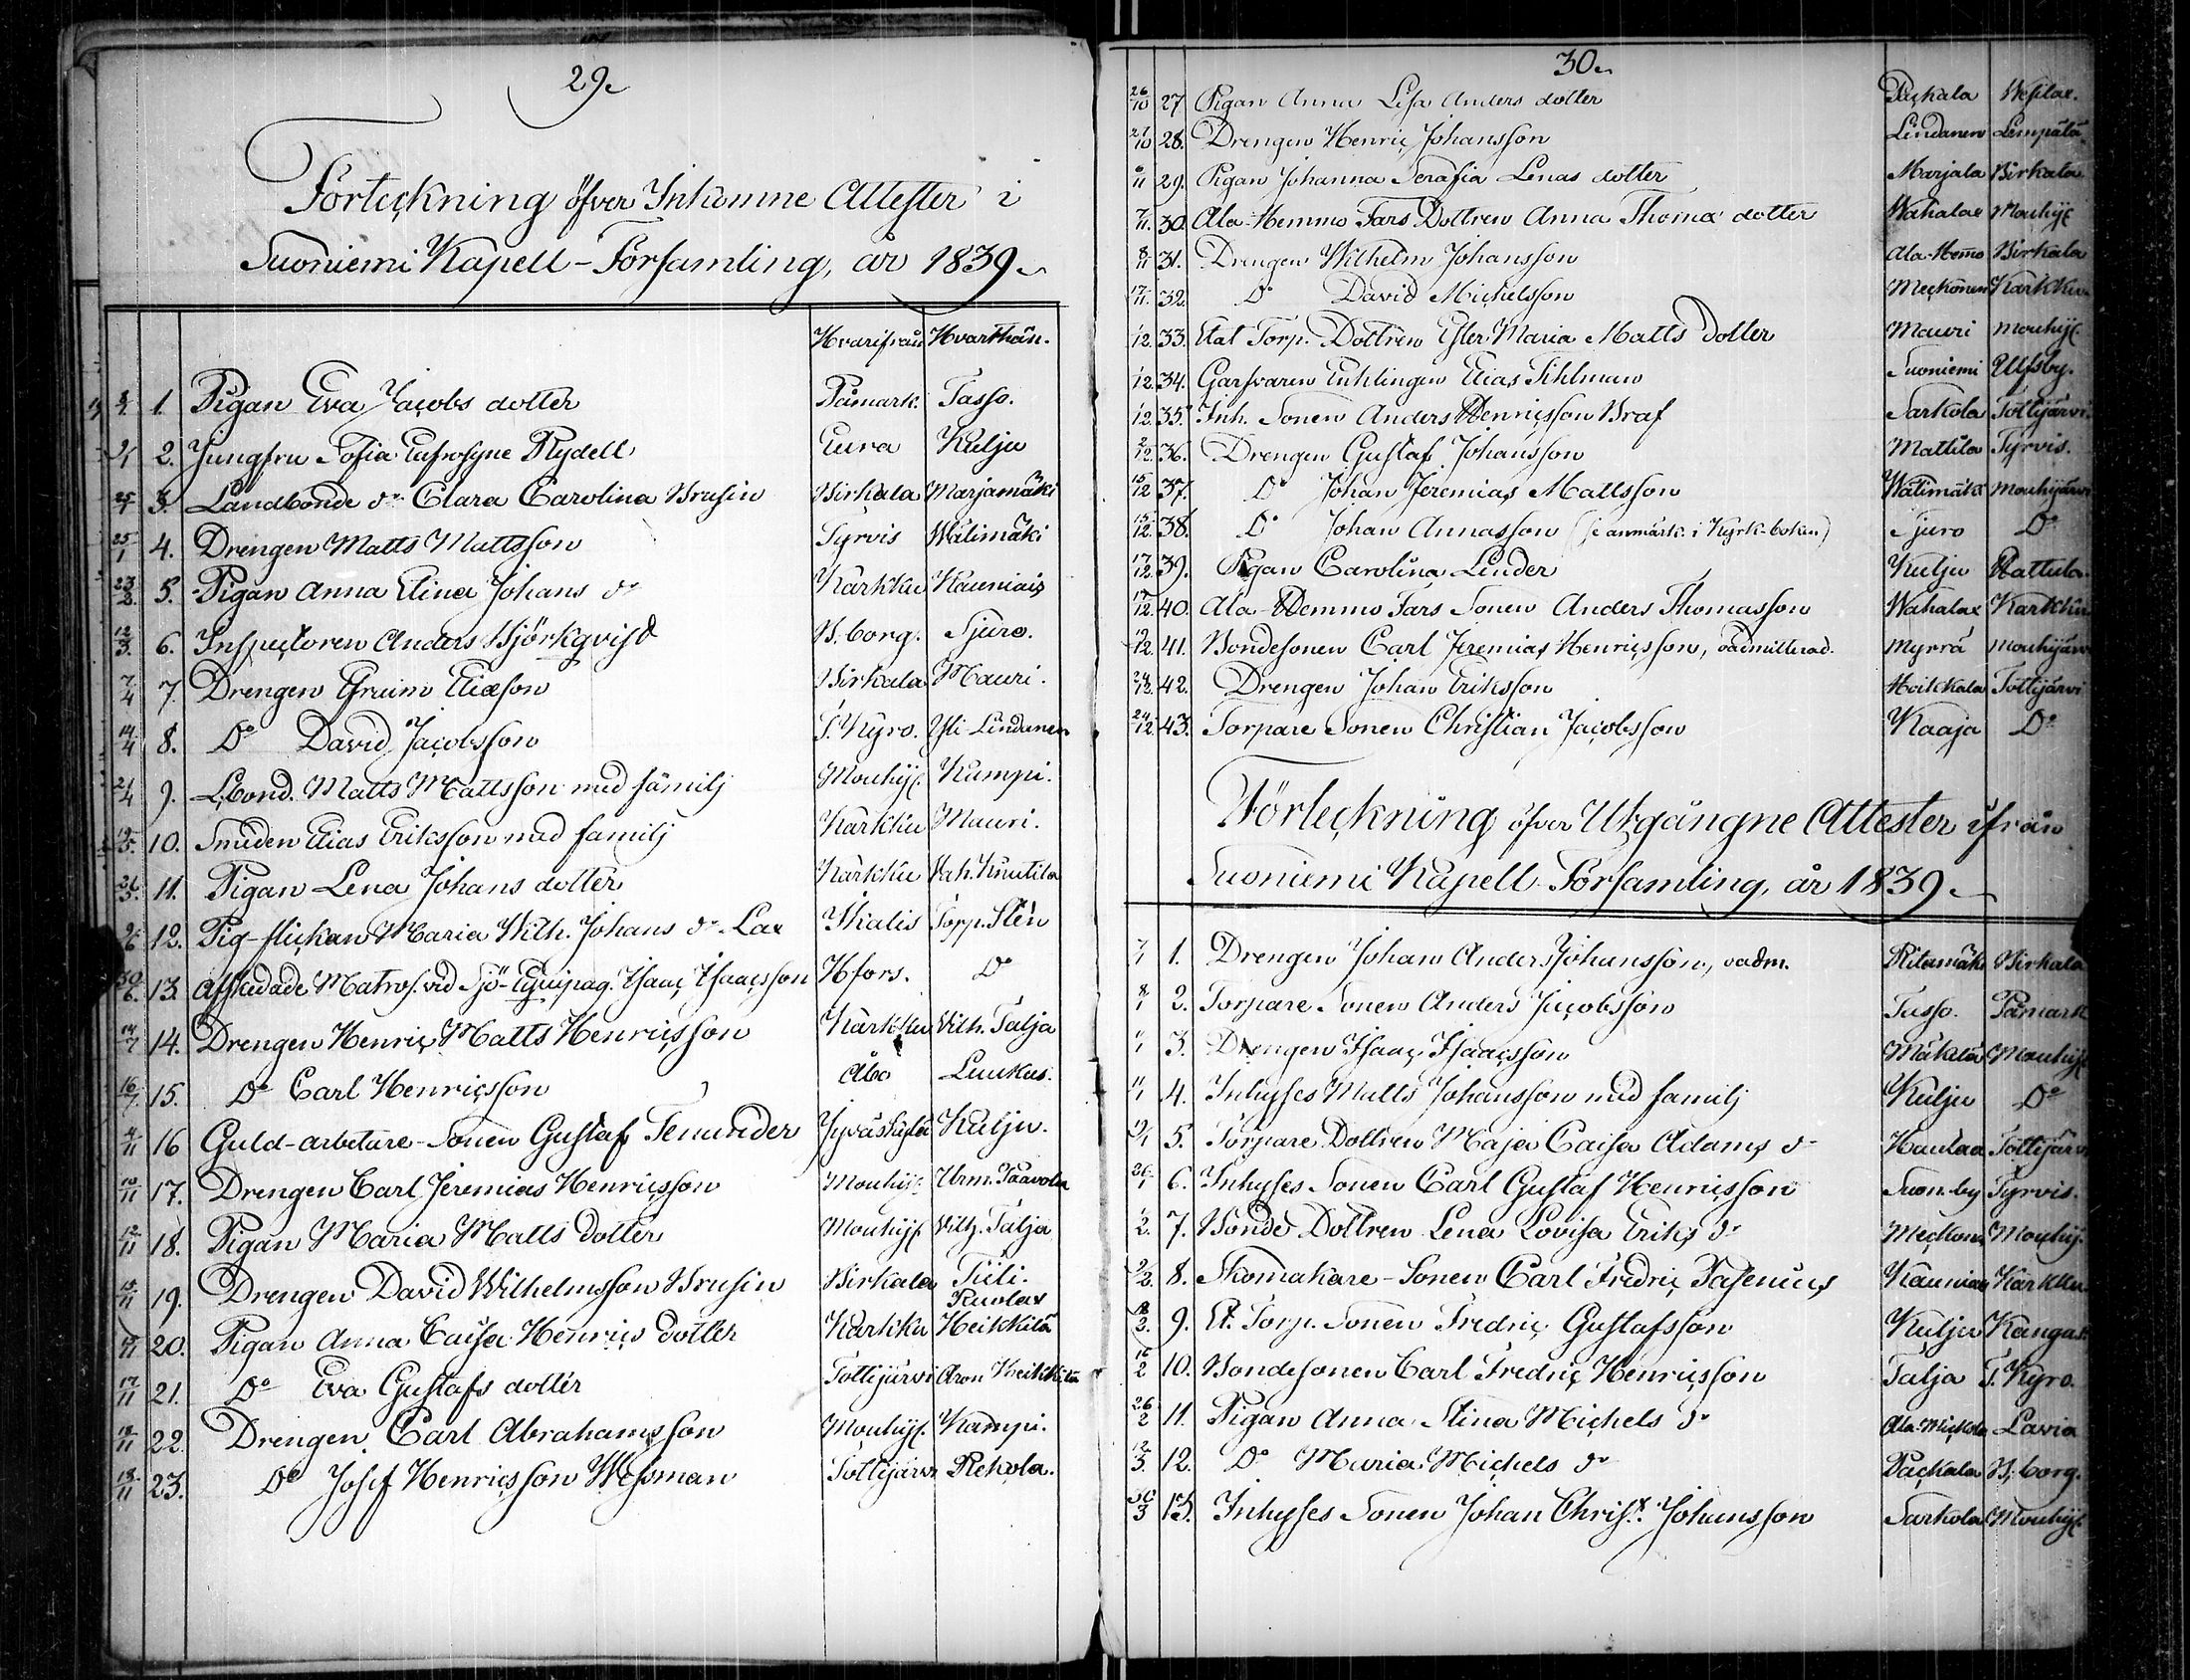 29
Förteckning öfver Inkomne Attester i
Suoniemi Kapell-Församling, år 1839
Hvarifrån Hvarthän.
1. Pigan Eva Jacobs dotter Påmark. Tasso.
2. Jungfru Sofia Eufrosyne Rydell Eura Kulju
25/1 3. Landbonde dr Clara Carolina Brusin Birkala Marjamäki
25/1 4. Drengen Matts Mattsson Tyrvis Wälimäki
23/2. 5. Pigan Anna Stina Johans dr Karkku Kauniais
12/3. 6. Inspectoren Anders Björkqvist B.borg. Sjuro.
7/4 7. Drengen Efraim Eliæson Birkala Mauri.
14/4 8. Do David Jacobsson T. Kyro. Yli-Lindanen
21/4 9. L.bond. Matts Mattsson med familj Mouhij. Kampi.
10. Smeden Elias Eriksson med familj Karkku Mauri.
11. Pigan Lena Johans dotter Karkku Vah. Knutila
12. Pig-flickan Maria Wilh. Johans dr Lax Ikalis Torp. Sten
30/6. 13. Afskedade Matros. vid Sjö-Equipag. Isaac Isaacsson Hfors. Do
14/7 14. Drengen Henric Matts Henricsson Karkku Vilh. Talja
16/7. 15. Do Carl Henricsson Åbo Luukus.
4/11 16 Guld-arbetare-Sonen Gustaf Tenunder Jyväskylä Kulju.
10/11 17. Drengen Carl Jeremias Henricsson Mouhij. Urm. Paavola
12/11 18. Pigan Maria Matts dotter Mouhij. Vilh. Talja
15/11 19. Drengen David Wilhelmsson Brusin Birkala Tiili.
20. Pigan Anna Caisa Henrics dotter Karkku Heikkilä
17/11 21. Do Eva Gustafs dotter Tottijärvi
18/11 22. Drengen Carl Abrahamsson Mouhij. Kampi.
18/11 23. Do Josef Henricsson Wessman Tottijärvi Rekola.
30
26/10 27. Pigan Anna Lisa Anders dotter Packala Wesilax.
27/10 28. Drengen Henric Johansson Lindanen Lempälä
29. Pigan Johanna Serafia Lenas dotter Marjala Birkala
7/11. 30. Ala-Hemmo Fars Dottren Anna Thomæ dotter Wahalax Mouhij.
8/11 31. Drengen Wilhelm Johansson Ala-Hemo Birkala
17/11. 32. Do David Michelsson Meckönen Karkku
33. Stat Torp. Dottren Ester Maria Matts dotter Mauri Mouhij.
34. Garfvaren Enklingen Elias Tihlman Suoniemi Ulfsby.
35. Inh. Sonen Anders Henricsson Braf Sarkola Tottijärvi.
2/12. 36. Drengen Gustaf Johansson Mattila Tyrvis.
15/12 37. Do Johan Jeremias Mattsson Wälimäki Mouhijärvi
15/12. 38. Do Johan Annasson (se anmärk. i Kyrk-boken) Sjuro Do
17/12. 39. Pigan Carolina Linder Kulju Rattula
17/12 40. Ala-Hemmo Fars Sonen Anders Thomasson Wahalax Karkku
19/12. 41. Bondesonen Carl Jeremias Henricsson, oadmitterad. Myrrä Mouhijärvi
24/12. 42. Drengen Johan Eriksson Hoikkala Tottijärvi
24/12 43. Torpare Sonen Christian Jacobsson Kaaja Do
Förteckning öfver Utgångne Attester ifrån
Suoniemi Kapell-Församling, år 1839
7/1 1. Drengen Johan Anders Johansson, oadm. Ritamäki Birkala
8/1 2. Torpare Sonen Anders Jacobsson Tasso. Påmark
3. Drengen Isaac Isaacsson Mäkelä Mouhij.
11/1 4. Inhyses Matts Johansson med familj Kulju Do
5. Torpare Dottren Maja Caisa Adams dr Haulaa Tottijärvi
26/1 6. Inhyses Sonen Carl Gustaf Henricsson Suon.by Tyrvis.
1/2. 7. Bonde Dottren Lena Lovisa Eriks dr Meckonen Mouhij.
8. Skomakare-Sonen Carl Fredric Pasenius Kauniais Karkku
9. St. Torp. Sonen Fredric Gustafsson Kulju Kangas.
16/2 10. Bondesonen Carl Fredric Henricsson Talja T. Kyro.
26/2 11. Pigan Anna Stina Michels dr Ala-Mickola Lavia
12/3. 12. Do Maria Michels dr Packala B:borg.
30/3 13. Inhyses Sonen Johan Christ. Johansson Sarkola Mouhij.